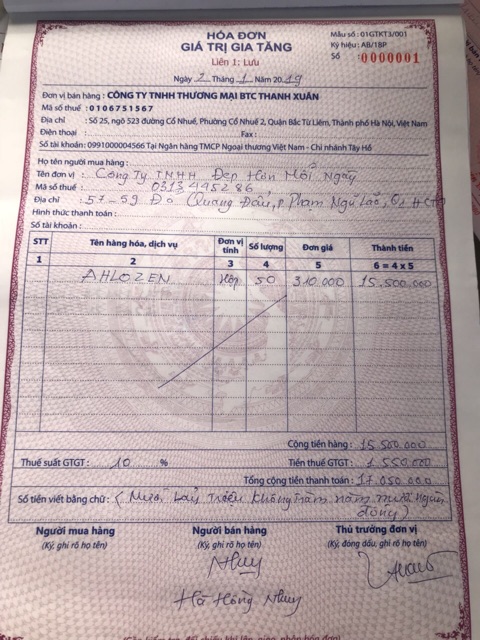 HÓA ĐƠN
GIÁ TRỊ GIA TĂNG
Liên 1: Lưu
Ngày 2 Tháng 1 Năm 2019
Mẫu số : 01GTKT3/001
Ký hiệu : AB/18P
Số 0000001
Đơn vị bán hàng : CÔNG TY TNHH THƯƠNG MẠI BTC THANH XUÂN
Mã số thuế : 0106751567
Địa chỉ : Số 25, ngõ 523 đường Cổ Nhuế, Phường Cổ Nhuế 2, Quận Bắc Từ Liêm, Thành phố Hà Nội, Việt Nam
Điện thoại : Fax :
Số tài khoản: 0991000004566 Tại Ngân hàng TMCP Ngoại thương Việt Nam - Chi nhánh Tây Hồ
Họ tên người mua hàng :
Tên đơn vị : Công Ty TNHH Đẹp Hơn Mỗi Ngày
Mã số thuế : 0313495286
Địa chỉ : 57-59 Đỗ Quang Đẩu, P. Phạm Ngũ Lão, Q1 HCM
Hình thức thanh toán :
Số tài khoản :
STT Tên hàng hóa, dịch vụ Đơn vị tính Số lượng Đơn giá Thành tiền
1 2 3 4 5 6 = 4 x 5
AHLOZEN Hộp 50 310.000 15.500.000
Cộng tiền hàng : 15.500.000
Thuế suất GTGT : 10 % Tiền thuế GTGT : 1.550.000
Tổng cộng tiền thanh toán : 17.050.000
Số tiền viết bằng chữ : (Mười bảy triệu không trăm năm mươi nghìn
đồng)
Người mua hàng Người bán hàng Thủ trưởng đơn vị
(Ký, ghi rõ họ tên) (Ký, ghi rõ họ tên) (Ký, đóng dấu, ghi rõ họ tên)
Nhuy
Hà Hồng Nhuy